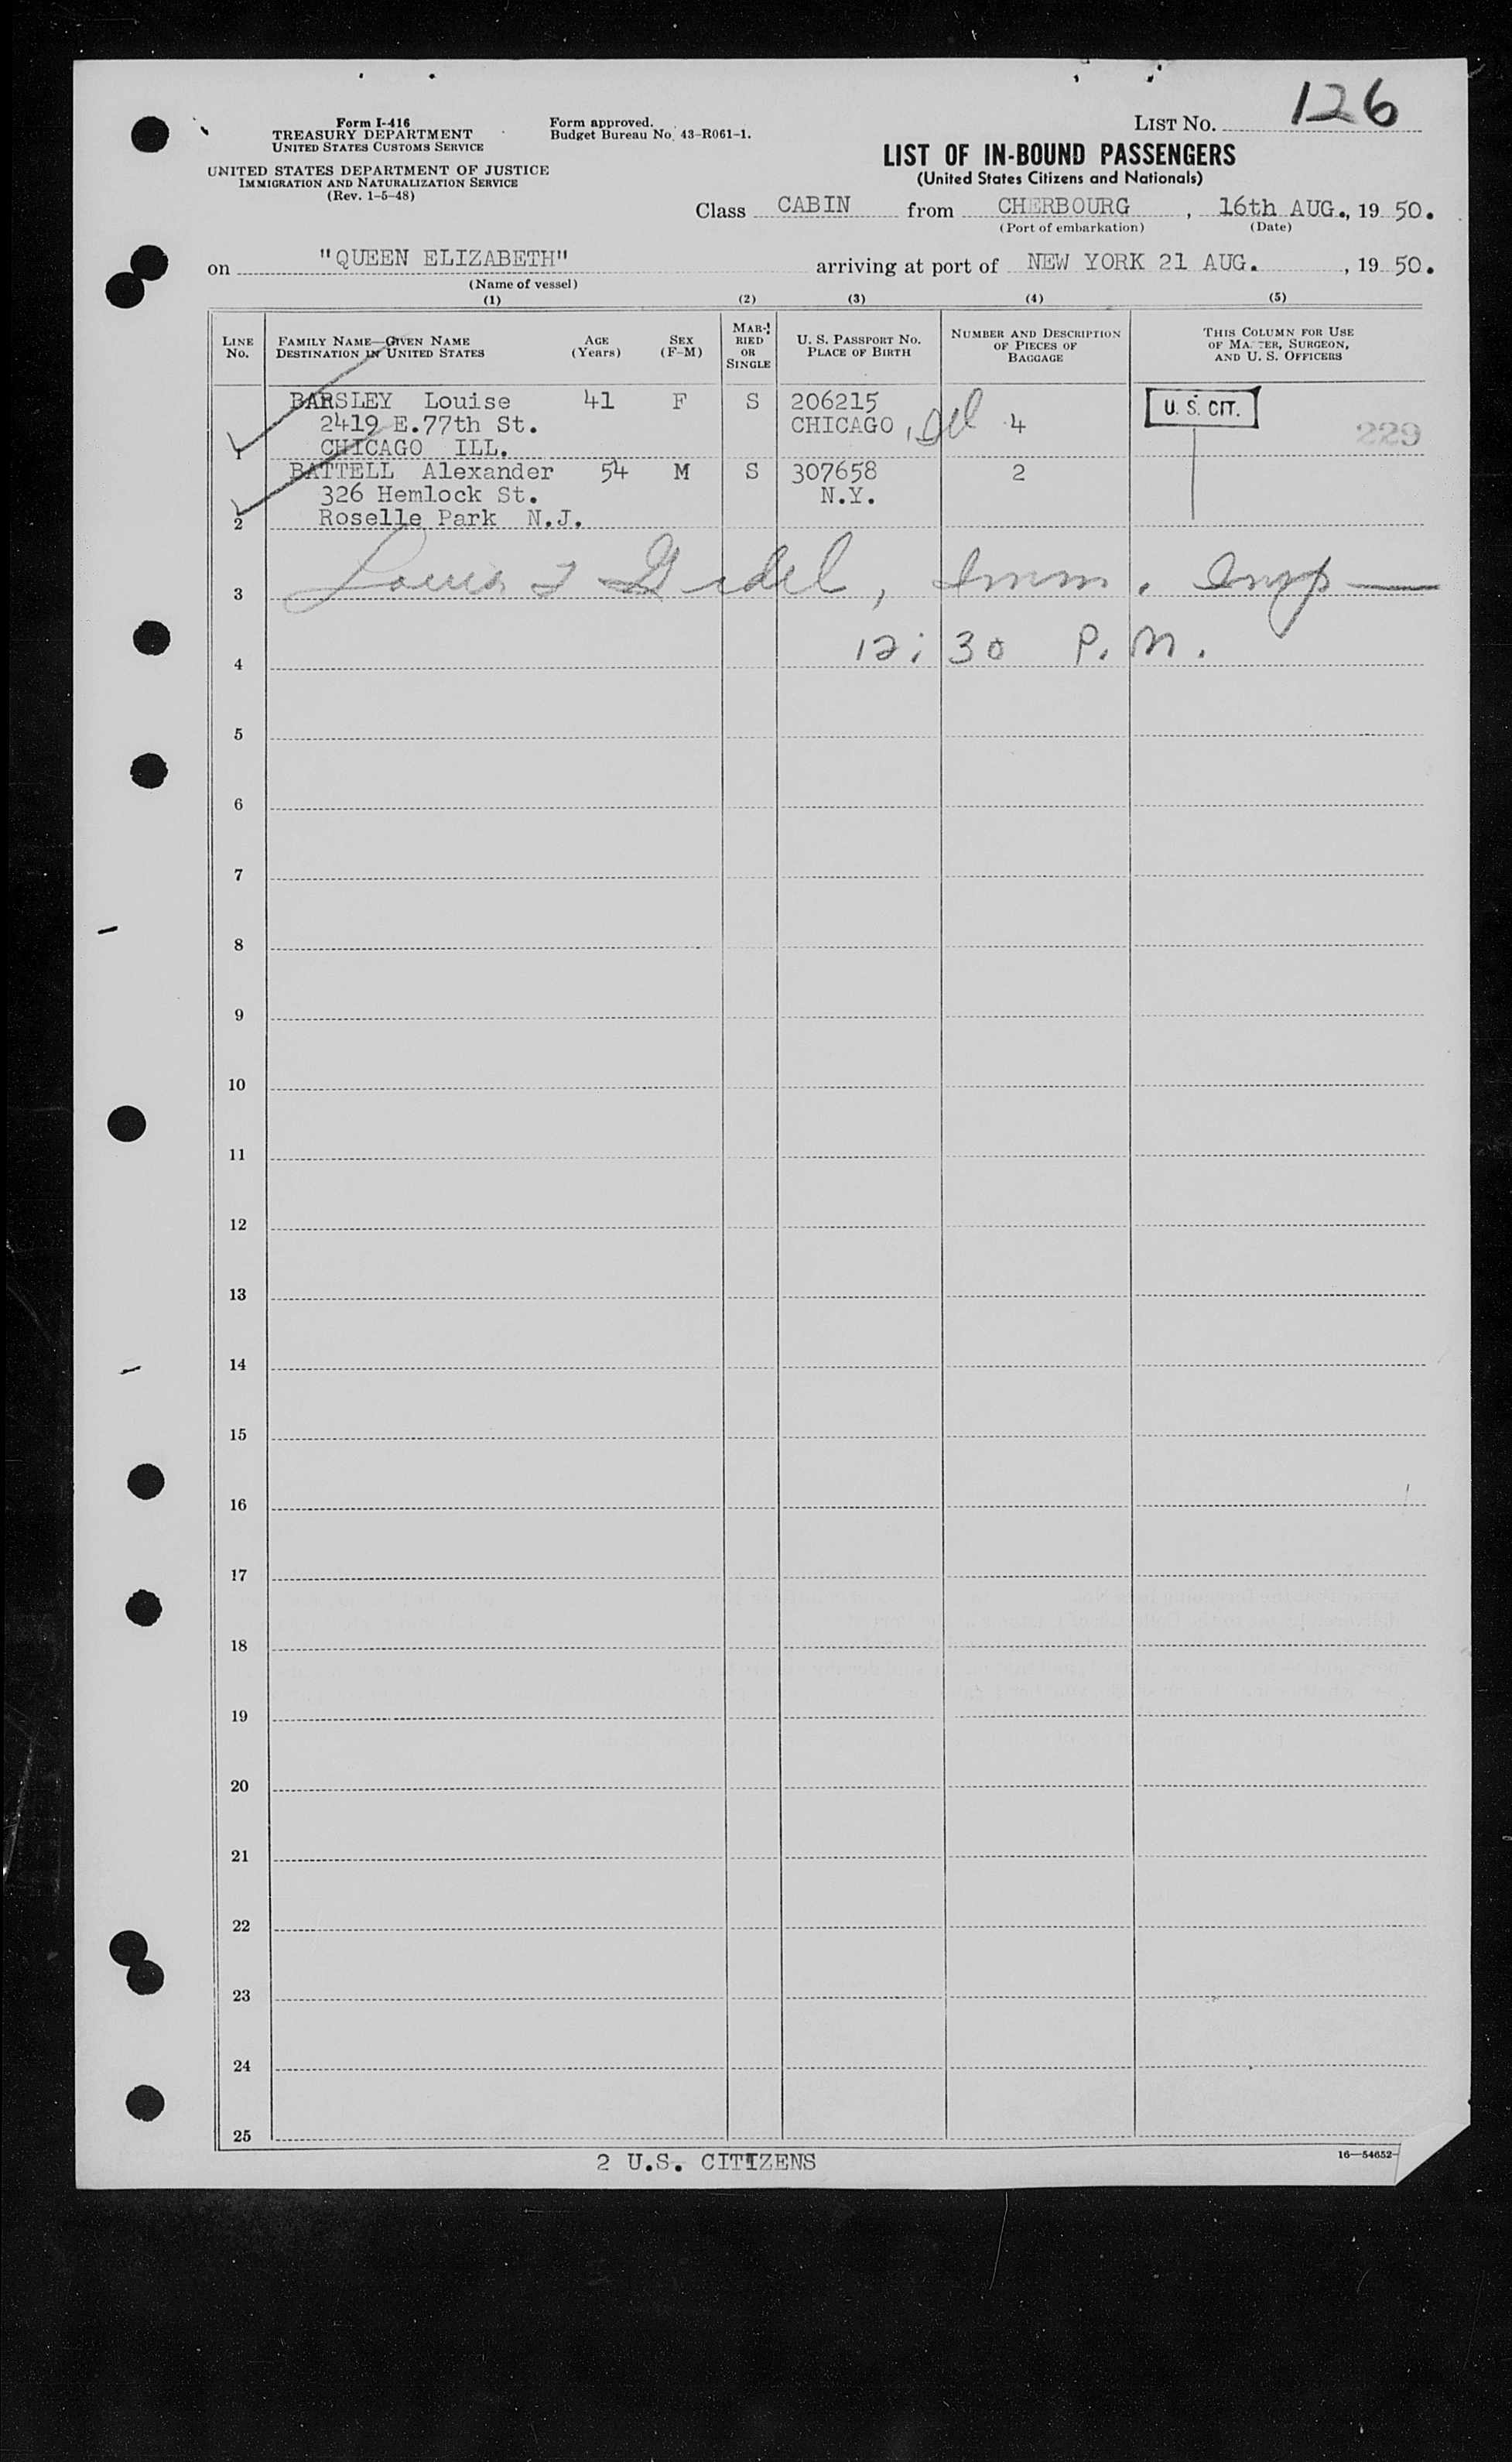 Form I-416
TREASURY DEPARTMENT
UNITED STATES CUSTOMS SERVICE
UNITED STATES DEPARTMENT OF JUSTICE
IMMIGRATION AND NATURALIZATION SERVICE
(Rev. 1-5-48)
Form approved.
Budget Bureau No. 43-R061-1.
LIST NO. 126
LIST OF IN-BOUND PASSENGERS
(United States Citizens and Nationals)
Class CABIN from CHERBOURG, 16th AUG., 19 50.
(Port of embarkation) (Date)
on "QUEEN ELIZABETH" arriving at port of NEW YORK 21 AUG., 19 50.
(Name of vessel)
(1) (2) (3) (4) (5)
LINE No.
FAMILY NAME—GIVEN NAME
DESTINATION IN UNITED STATES
AGE
(Years)
SEX
(F-M)
MAR-
RIED
OR
SINGLE
U. S. PASSPORT NO.
PLACE OF BIRTH
NUMBER AND DESCRIPTION
OF PIECES OF
BAGGAGE
THIS COLUMN FOR USE
OF MASTER, SURGEON,
AND U. S. OFFICERS
BARSLEY Louise 41 F S 206215 U. S. CIT.
2419 E.77th St. CHICAGO 4 229
1 CHICAGO ILL.
BATTELL Alexander 54 M S 307658 2
326 Hemlock St. N.Y.
2 Roselle Park N.J.
3 Louis Imm. Insp
4 12:30 P.M.
5
6
7
8
9
10
11
12
13
14
15
16
17
18
19
20
21
22
23
24
25
2 U.S. CITIZENS
16—54652-